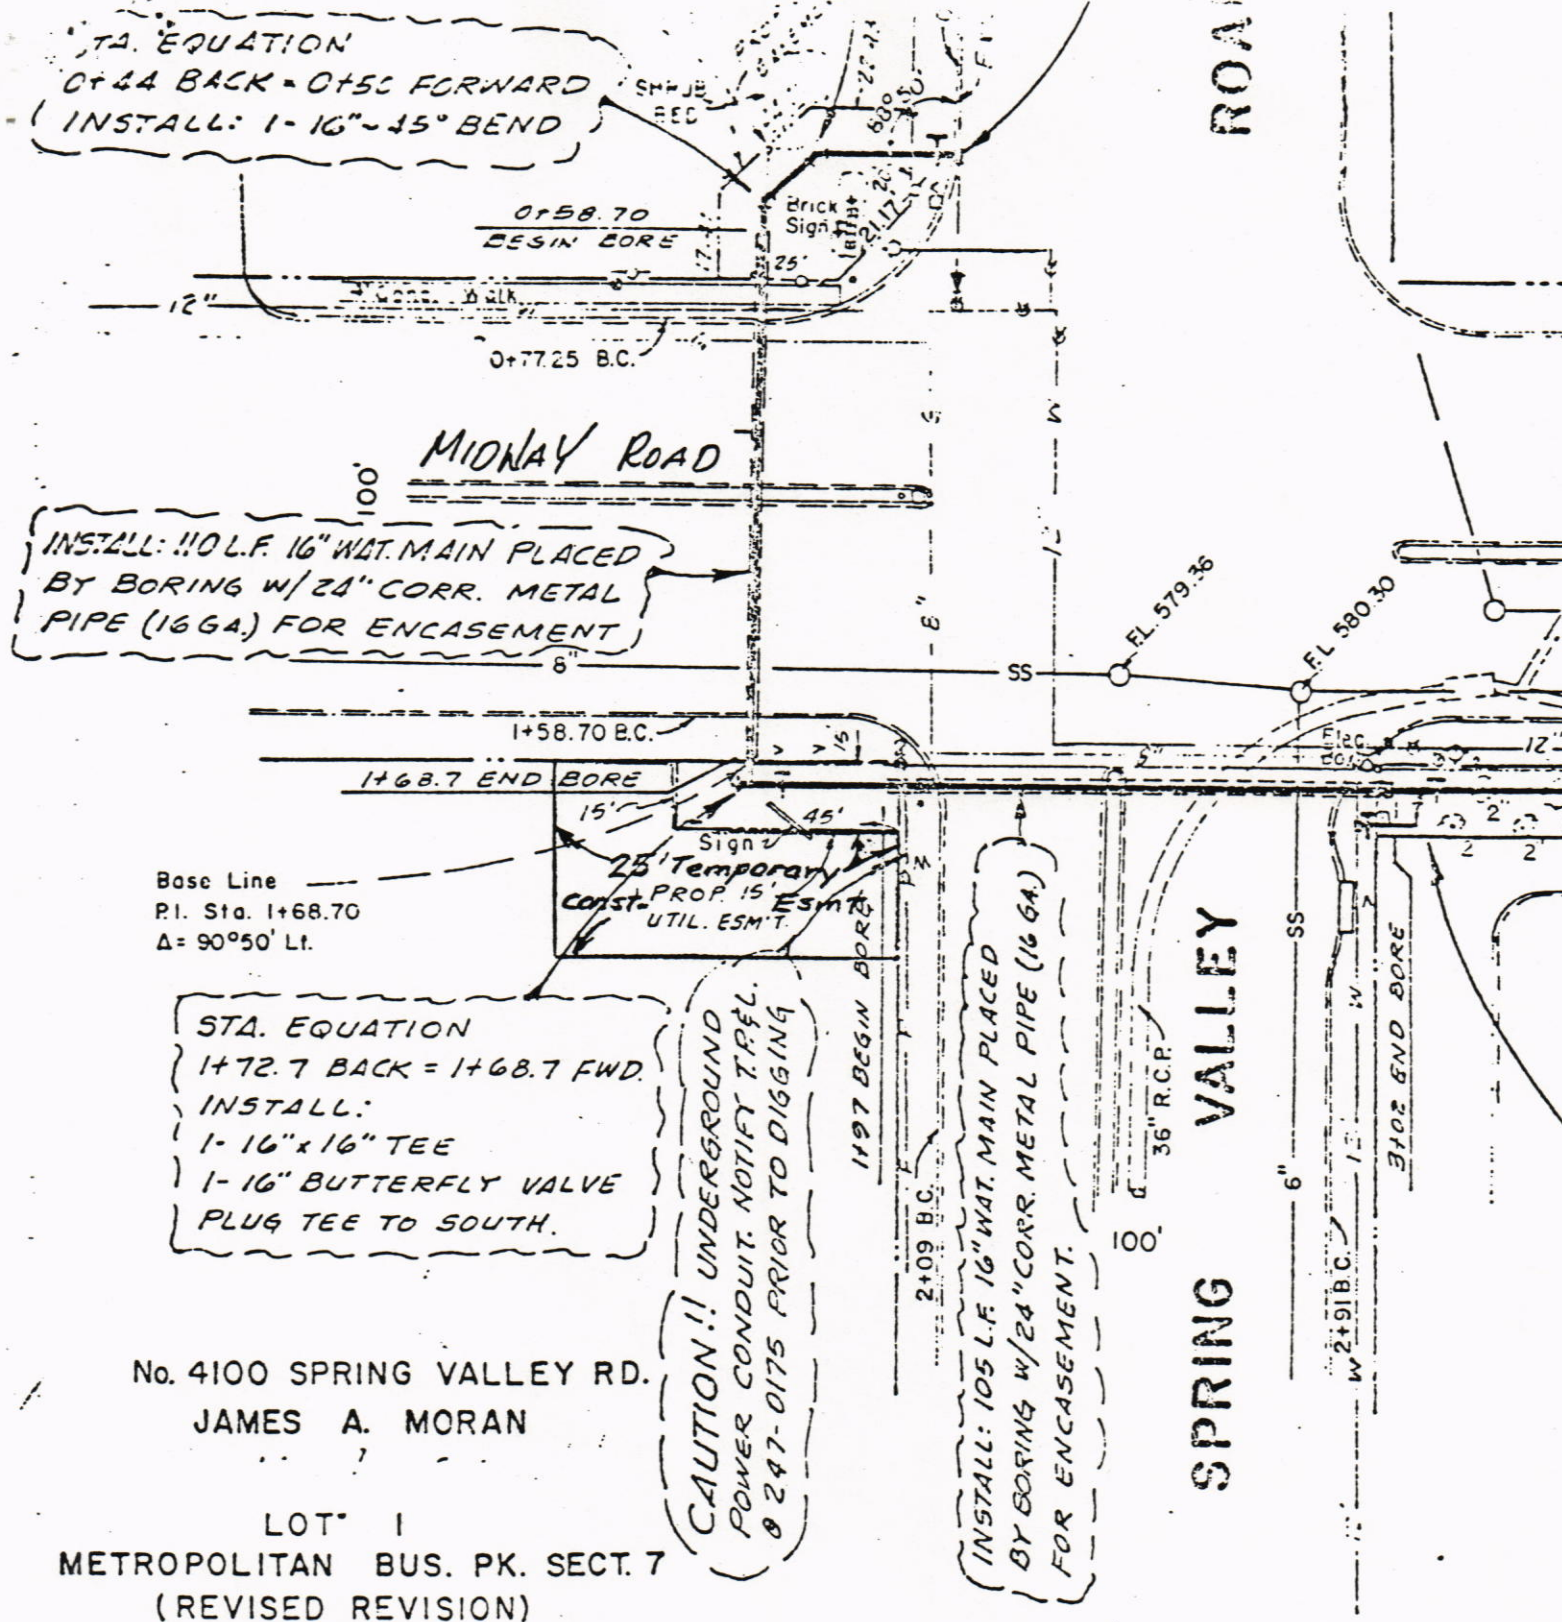 TA. EQUATION
0+44 BACK = 0+50 FORWARD
INSTALL: 1- 16"~45° BEND
SHRUB
BED
ROA
0+58.70
BEGIN BORE
Brick
Sign
21.17
25'
Conc. Walk
12"
0+77.25 B.C.
MIDWAY ROAD
100'
INSTALL: 110 L.F. 16" WAT. MAIN PLACED
BY BORING W/24" CORR. METAL
PIPE (16 GA.) FOR ENCASEMENT
8"
SS
8"
F.L. 579.36
F.L. 580.30
1+58.70 B.C.
15'
1+68.7 END BORE
15'
45'
Sign
12"
2"
2
2'
25' Temporary
Const. Esmt.
PROP. 15'
UTIL. ESM'T.
Base Line
P.I. Sta. 1+68.70
Δ= 90°50' Lt.
STA. EQUATION
1+72.7 BACK = 1+68.7 FWD.
INSTALL:
1- 16" x 16" TEE
1- 16" BUTTERFLY VALVE
PLUG TEE TO SOUTH.
CAUTION!! UNDERGROUND
POWER CONDUIT. NOTIFY T.P.&L.
@ 247-0175 PRIOR TO DIGGING
1+97 BEGIN BORE
2+09 B.C.
INSTALL: 105 L.F. 16" WAT. MAIN PLACED
BY BORING W/24" CORR. METAL PIPE (16 GA.)
FOR ENCASEMENT.
36" R.C.P.
100'
SPRING VALLEY
SS
6"
W
2+91 B.C.
W
3+02 END BORE
No. 4100 SPRING VALLEY RD.
JAMES A. MORAN
LOT 1
METROPOLITAN BUS. PK. SECT. 7
(REVISED REVISION)